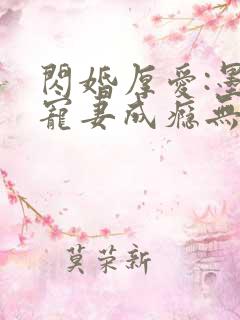 閃婚厚愛:墨
寵妻成癮無
莫荣新